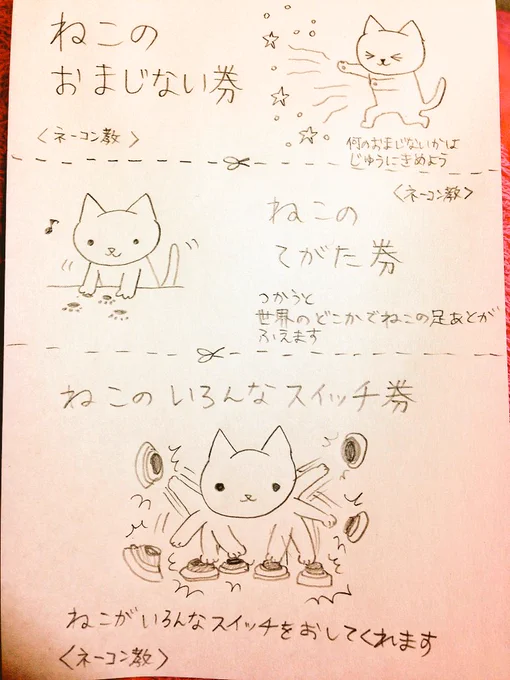 ねこの
おまじない券
〈ネーコン教〉
何のおまじないかは
じゆうにきめよう
〈ネーコン教〉
ねこの
てがた券
つかうと
世界のどこかでねこの足あとが
ふえます
ねこのいろんなスイッチ券
ねこがいろんなスイッチをおしてくれます
〈ネーコン教〉